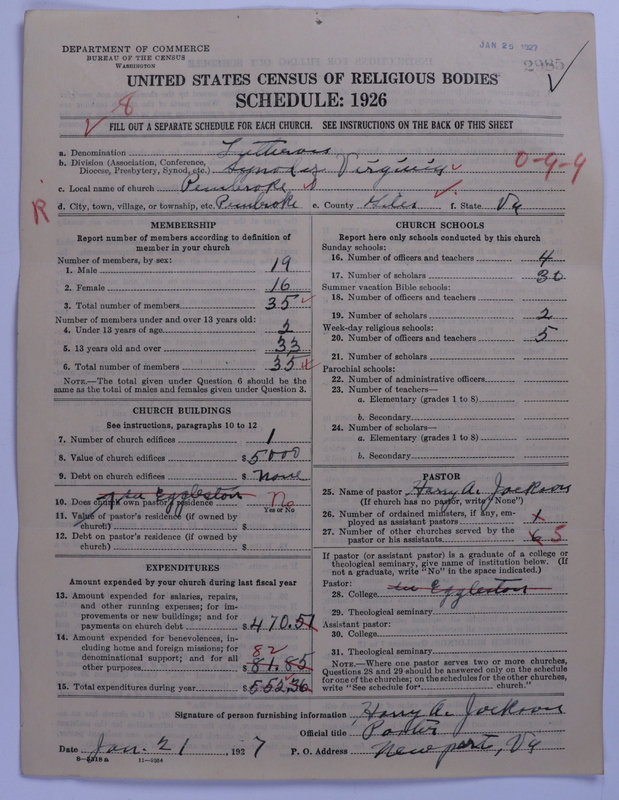 DEPARTMENT OF COMMERCE
BUREAU OF THE CENSUS
WASHINGTON
JAN 25 1927
2985
UNITED STATES CENSUS OF RELIGIOUS BODIES
SCHEDULE: 1926
8
FILL OUT A SEPARATE SCHEDULE FOR EACH CHURCH. SEE INSTRUCTIONS ON THE BACK OF THIS SHEET
a. Denomination Lutheran
b. Division (Association, Conference,
Diocese, Presbytery, Synod, etc.) Synod of Virginia
0-9-9
c. Local name of church Pembroke
R
d. City, town, village, or township, etc. Pembroke e. County Giles f. State Va
MEMBERSHIP
Report number of members according to definition of
member in your church
Number of members, by sex:
1. Male 19
2. Female 16
3. Total number of members 35
Number of members under and over 13 years old:
4. Under 13 years of age 2
5. 13 years old and over 33
6. Total number of members 35
NOTE.—The total given under Question 6 should be the
same as the total of males and females given under Question 3.
CHURCH BUILDINGS
See instructions, paragraphs 10 to 12
7. Number of church edifices 1
8. Value of church edifices $ 5000
9. Debt on church edifices $ None
in Eggleston
10. Does church own pastor's residence No
Yes or No
11. Value of pastor's residence (if owned by
church) $
12. Debt on pastor's residence (if owned by
church) $
EXPENDITURES
Amount expended by your church during last fiscal year
13. Amount expended for salaries, repairs,
and other running expenses; for im-
provements or new buildings; and for
payments on church debt $ 470.51
14. Amount expended for benevolences, in-
cluding home and foreign missions; for
denominational support; and for all
other purposes $ 81.85
82
15. Total expenditures during year $ 552.36
CHURCH SCHOOLS
Report here only schools conducted by this church
Sunday schools:
16. Number of officers and teachers 4
17. Number of scholars 30
Summer vacation Bible schools:
18. Number of officers and teachers
19. Number of scholars 2
Week-day religious schools:
20. Number of officers and teachers 5
21. Number of scholars
Parochial schools:
22. Number of administrative officers
23. Number of teachers—
a. Elementary (grades 1 to 8)
b. Secondary
24. Number of scholars—
a. Elementary (grades 1 to 8)
b. Secondary
PASTOR
25. Name of pastor Harry A. Jackson
(If church has no pastor, write "None")
26. Number of ordained ministers, if any, em-
ployed as assistant pastors x
27. Number of other churches served by the
pastor or his assistants 6 5
If pastor (or assistant pastor) is a graduate of a college or
theological seminary, give name of institution below. (If
not a graduate, write "No" in the space indicated.)
Pastor:
28. College in Eggleston
29. Theological seminary
Assistant pastor:
30. College
31. Theological seminary
NOTE.—Where one pastor serves two or more churches,
Questions 28 and 29 should be answered only on the schedule
for one of the churches; on the schedules for the other churches,
write "See schedule for church."
Signature of person furnishing information Harry A. Jackson
Official title Pastor
Date Jan. 21, 1927 P. O. Address Newport, Va
8—5318a 11—9264